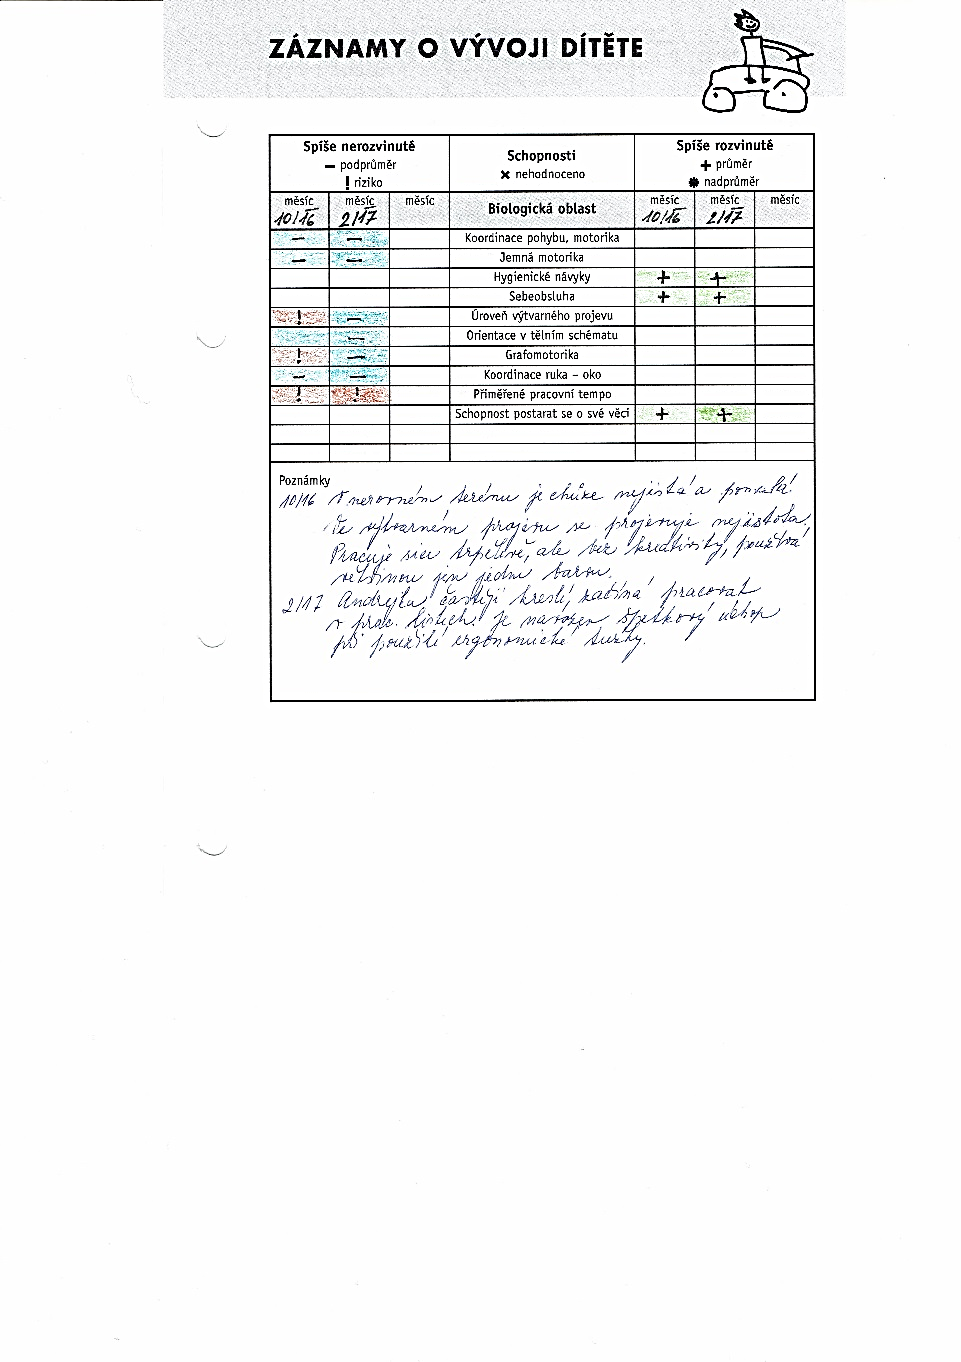 ZÁZNAMY O VÝVOJI DÍTĚTE
Spíše nerozvinuté
– podprůměr
! riziko
Schopnosti
× nehodnoceno
Spíše rozvinuté
+ průměr
✱ nadprůměr
měsíc měsíc měsíc Biologická oblast měsíc měsíc měsíc
10/16 2/17 10/16 2/17
– – Koordinace pohybu, motorika
– – Jemná motorika
Hygienické návyky + +
Sebeobsluha + +
! – Úroveň výtvarného projevu
– Orientace v tělním schématu
! – Grafomotorika
– – Koordinace ruka – oko
! ! Přiměřené pracovní tempo
Schopnost postarat se o své věci + +
Poznámky
10/16 V nerovném terénu je chůze nejistá a pomalá.
Ve výtvarném projevu se projevuje nejistota.
Pracuje sice trpělivě, ale bez kreativity, používá
většinou jen jednu barvu.
2/17 Andrejka častěji kreslí, začíná pracovat
v prac. listech. Je navozen špetkový úchop
při použití ergonomické tužky.